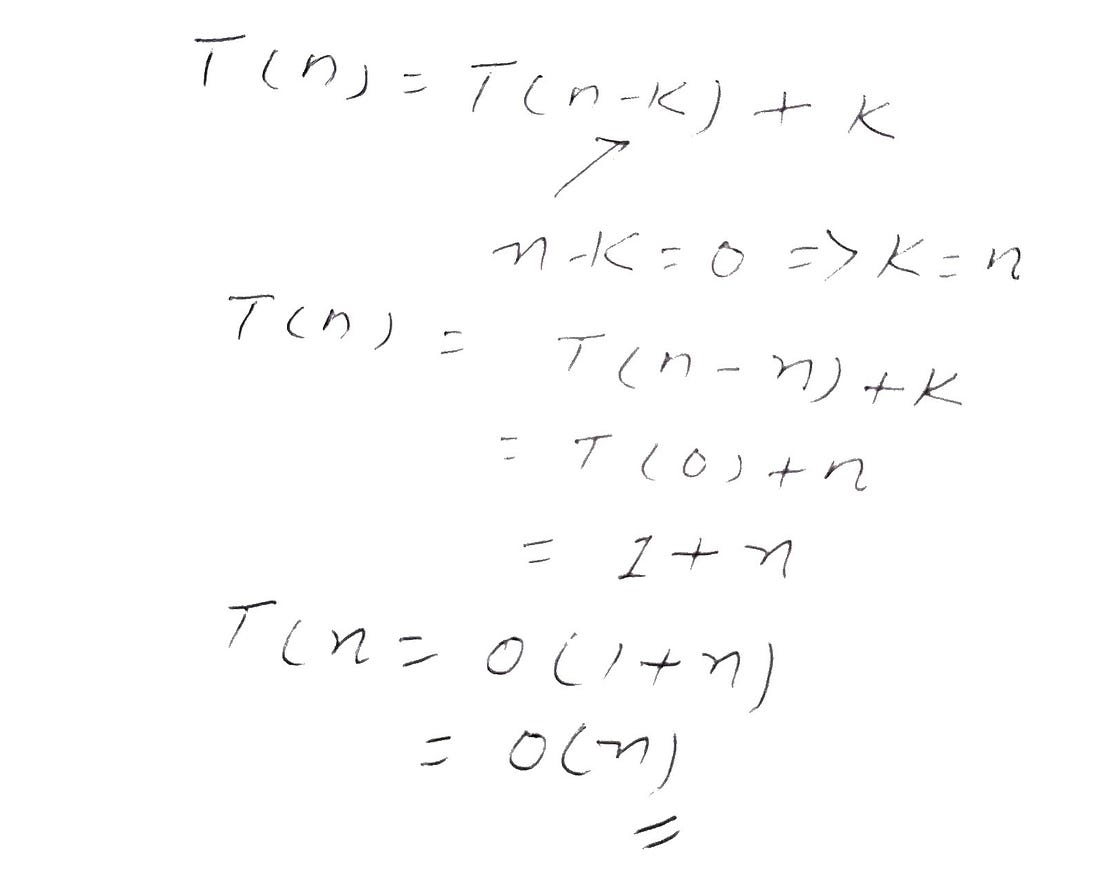 T(n) = T(n-k) + k
n-k = 0 => k = n
T(n) = T(n-n) + k
= T(0) + n
= 1 + n
T(n = O(1+n)
= O(n)